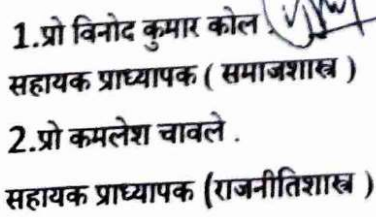 1.प्रो विनोद कुमार कोल
सहायक प्राध्यापक ( समाजशास्त्र )
2.प्रो कमलेश चावले .
सहायक प्राध्यापक (राजनीतिशास्त्र )